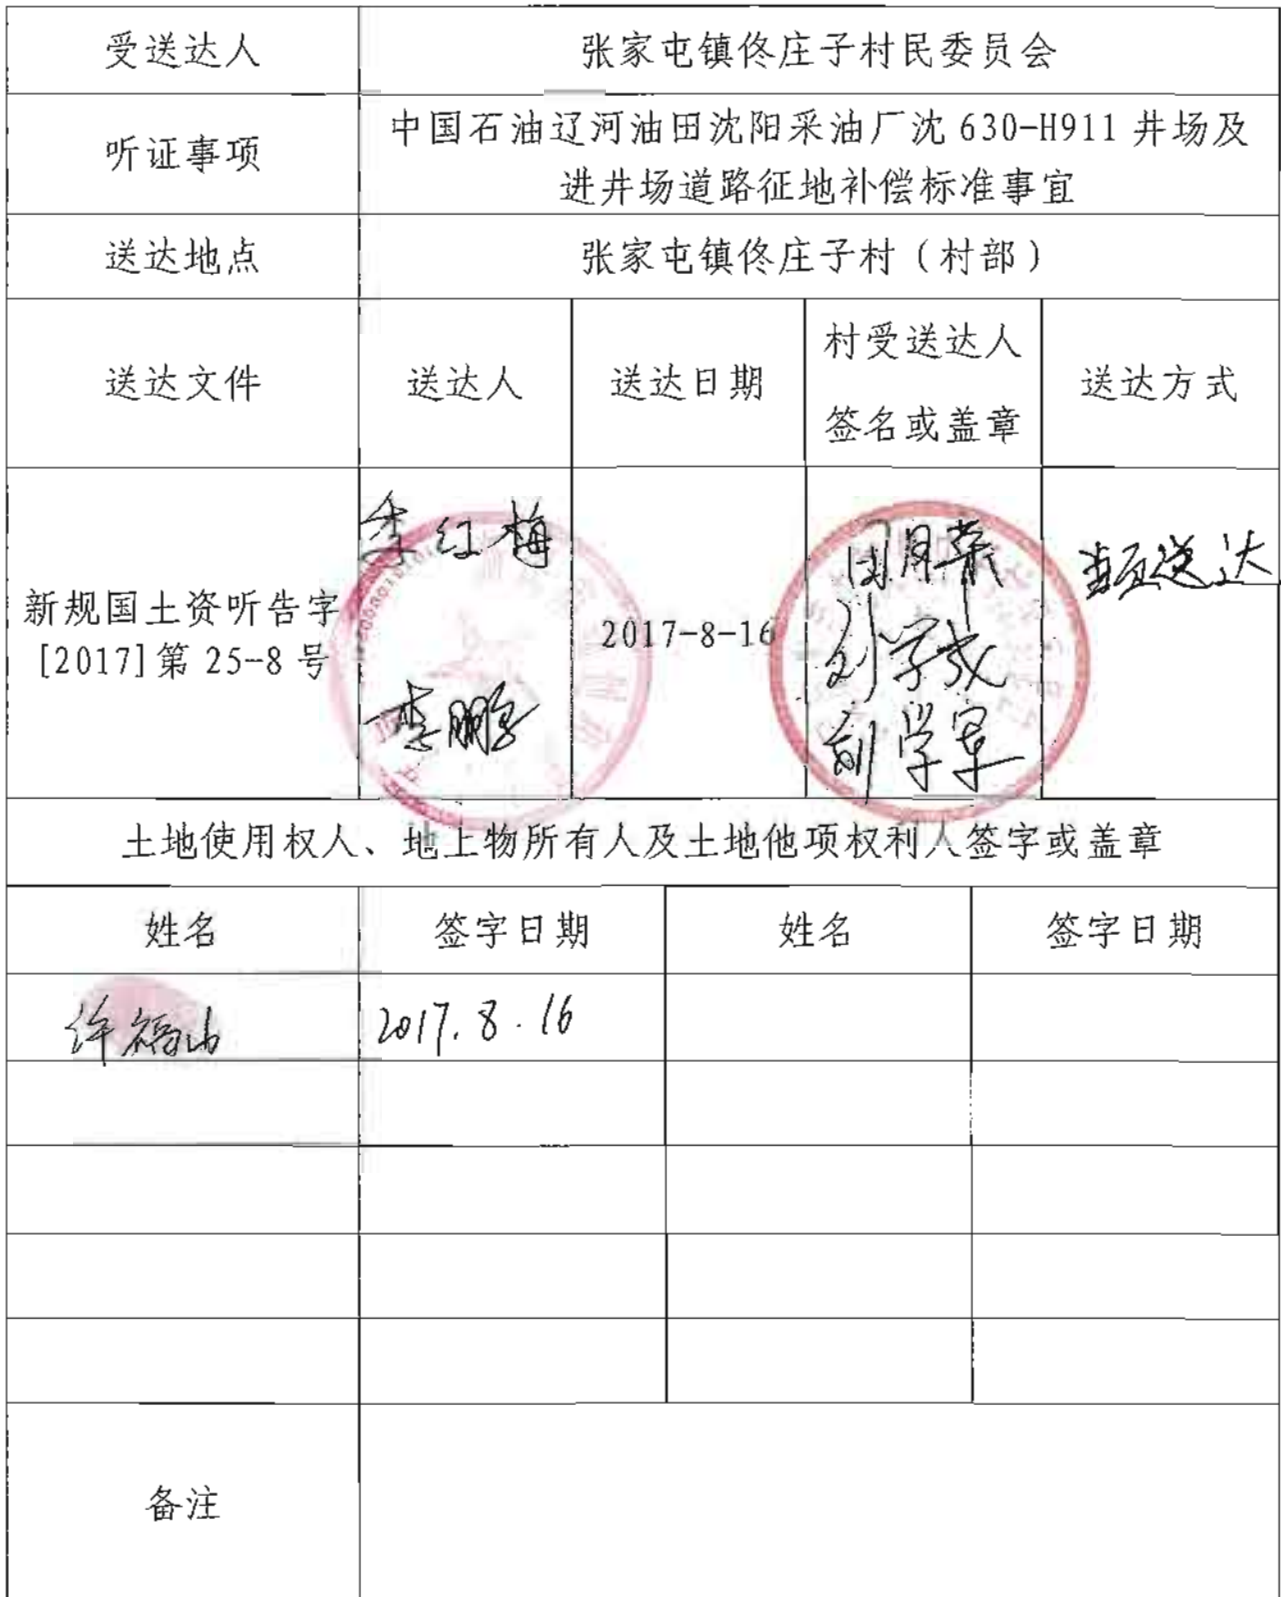 受送达人 张家屯镇佟庄子村民委员会
听证事项 中国石油辽河油田沈阳采油厂沈 630-H911 井场及
进井场道路征地补偿标准事宜
送达地点 张家屯镇佟庄子村（村部）
送达文件 送达人 送达日期 村受送达人
签名或盖章 送达方式
新规国土资听告字
[2017]第 25-8 号
李红梅
李鹏
2017-8-16
刘学成
刘学军
送达
土地使用权人、地上物所有人及土地他项权利人签字或盖章
姓名 签字日期 姓名 签字日期
许福山 2017.8.16
备注